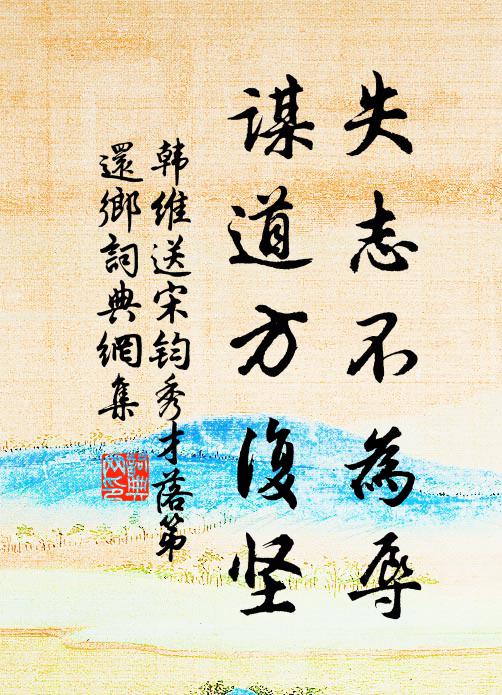 失志不為辱
謀道方復坚
韩維送宋钧秀才落第
還鄉詞典網集